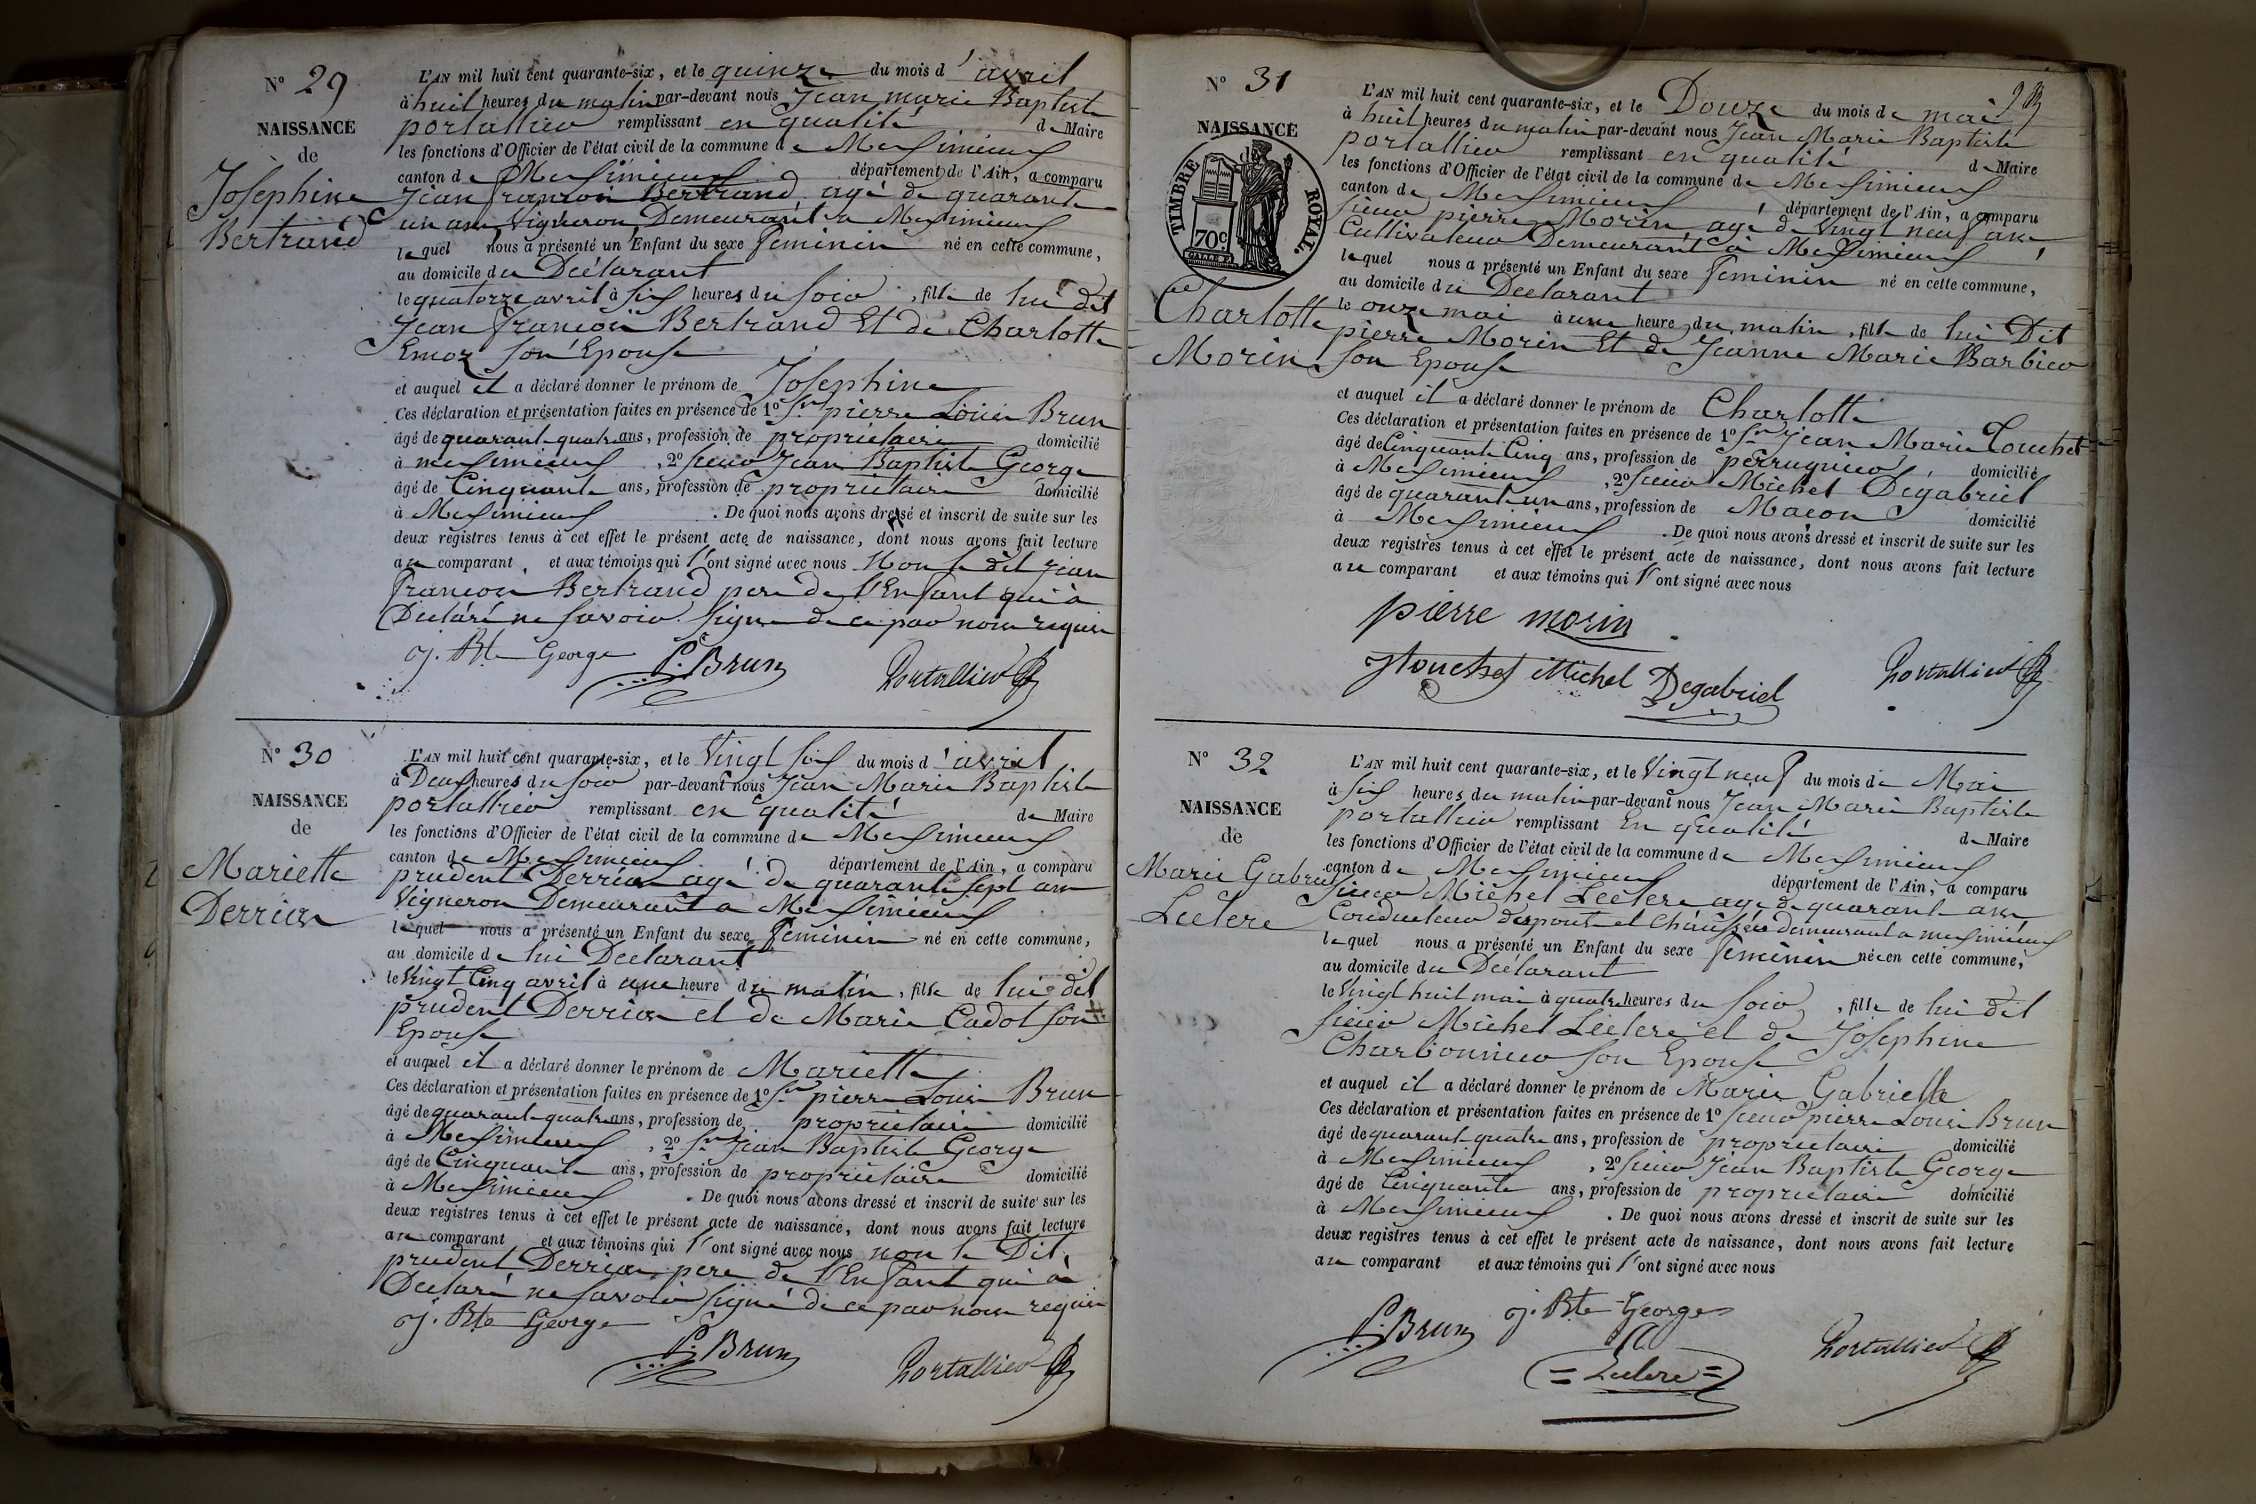 N° 29
NAISSANCE
de
Josephine
Bertrand
L'AN mil huit cent quarante-six, et le quinze du mois d'avril
à huit heures du matin par-devant nous Jean marie Baptiste
portallier remplissant en qualité de Maire
les fonctions d'Officier de l'état civil de la commune de Messimieux
canton de Messimieux département de l'Ain, a comparu
Jean françois Bertrand, agé de quarante
un ans, Vigneron, Demeurant a Messimieux
lequel nous a présenté un Enfant du sexe feminin né en cette commune,
au domicile du Déclarant
le quatorze avril à six heures du soir, fille de lui dit
Jean françois Bertrand Et de Charlotte
Emoz son Epouse
et auquel il a déclaré donner le prénom de Josephine
Ces déclaration et présentation faites en présence de 1° Sr pierre Louis Brun
âgé de quarante quatre ans, profession de propriétaire domicilié
à messimieux, 2° sieur Jean Baptiste George
âgé de Cinquante ans, profession de propriétaire domicilié
à Messimieux. De quoi nous avons dressé et inscrit de suite sur les
deux registres tenus à cet effet le présent acte de naissance, dont nous avons fait lecture
au comparant et aux témoins qui l'ont signé avec nous Non le dit Jean
françois Bertrand pere de l'Enfant qui à
Déclaré ne savoir signe de ce par nous requis
j. Bte George P. Brun Portallier
N° 30
NAISSANCE
de
Mariette
Derriaz
L'AN mil huit cent quarante-six, et le Vingt six du mois d'avril
à Deux heures du soir par-devant nous Jean Marie Baptiste
portallier remplissant en qualité de Maire
les fonctions d'Officier de l'état civil de la commune de Messimieux
canton de Messimieux département de l'Ain, a comparu
prudent Derriaz agé de quarante sept ans
Vigneron Demeurant a Messimieux
lequel nous a présenté un Enfant du sexe feminin né en cette commune,
au domicile de lui Declarant
le Vingt Cinq avril à une heure du matin, fille de lui dit
prudent Derriaz et de Marie Cadot son
Epouse
et auquel il a déclaré donner le prénom de Mariette
Ces déclaration et présentation faites en présence de 1° Sr pierre Louis Brun
âgé de quarante quatre ans, profession de propriétaire domicilié
à Messimieux, 2° Sr Jean Baptiste George
âgé de Cinquante ans, profession de propriétaire domicilié
à Messimieux. De quoi nous avons dressé et inscrit de suite sur les
deux registres tenus à cet effet le présent acte de naissance, dont nous avons fait lecture
au comparant et aux témoins qui l'ont signé avec nous non le Dit
prudent Derriaz pere de l'Enfant qui à
Déclaré ne savoir signé de ce par nous requis
j. Bte George P. Brun Portallier
N° 31
NAISSANCE
TIMBRE ROYAL.
70c
Charlotte
Morin
L'AN mil huit cent quarante-six, et le Douze du mois de mai
à huit heures du matin par-devant nous Jean Marie Baptiste
portallier remplissant en qualité de Maire
les fonctions d'Officier de l'état civil de la commune de Messimieux
canton de Messimieux département de l'Ain, a comparu
sieur pierre Morin, agé de Vingt neuf ans
Cultivateur Demeurant à Messimieux
lequel nous a présenté un Enfant du sexe feminin né en cette commune,
au domicile du Declarant
le onze mai à une heure du matin, fille de lui Dit
pierre Morin Et de Jeanne Marie Barbier
son Epouse
et auquel il a déclaré donner le prénom de Charlotte
Ces déclaration et présentation faites en présence de 1° Sr Jean Marie Touchet
âgé de Cinquante Cinq ans, profession de perruquier, domicilié
à Messimieux, 2° sieur Michel Dégabriel
âgé de quarante un ans, profession de Macon domicilié
à Messimieux. De quoi nous avons dressé et inscrit de suite sur les
deux registres tenus à cet effet le présent acte de naissance, dont nous avons fait lecture
au comparant et aux témoins qui l'ont signé avec nous
pierre morin
Touchet Michel Degabriel Portallier
N° 32
NAISSANCE
de
Marie Gabriel
Leclere
L'AN mil huit cent quarante-six, et le Vingt neuf du mois de Mai
à six heures du matin par-devant nous Jean Marie Baptiste
portallier remplissant En qualité de Maire
les fonctions d'Officier de l'état civil de la commune de Messimieux
canton de Messimieux département de l'Ain, a comparu
sieur Michel Leclere agé de quarante ans
Conducteur des ponts et Chaussées demeurant a messimieux
lequel nous a présenté un Enfant du sexe feminin née en cette commune,
au domicile du Déclarant
le Vingt huit mai à quatre heures du soir, fille de lui dit
sieur Michel Leclere et de Josephine
Charbonnier son Epouse
et auquel il a déclaré donner le prénom de Marie Gabrielle
Ces déclaration et présentation faites en présence de 1° sieur pierre Louis Brun
âgé de quarante quatre ans, profession de propriétaire domicilié
à Messimieux, 2° sieur Jean Baptiste George
âgé de Cinquante ans, profession de propriétaire domicilié
à Messimieux. De quoi nous avons dressé et inscrit de suite sur les
deux registres tenus à cet effet le présent acte de naissance, dont nous avons fait lecture
au comparant et aux témoins qui l'ont signé avec nous
P. Brun j. Bte George Portallier
Leclere